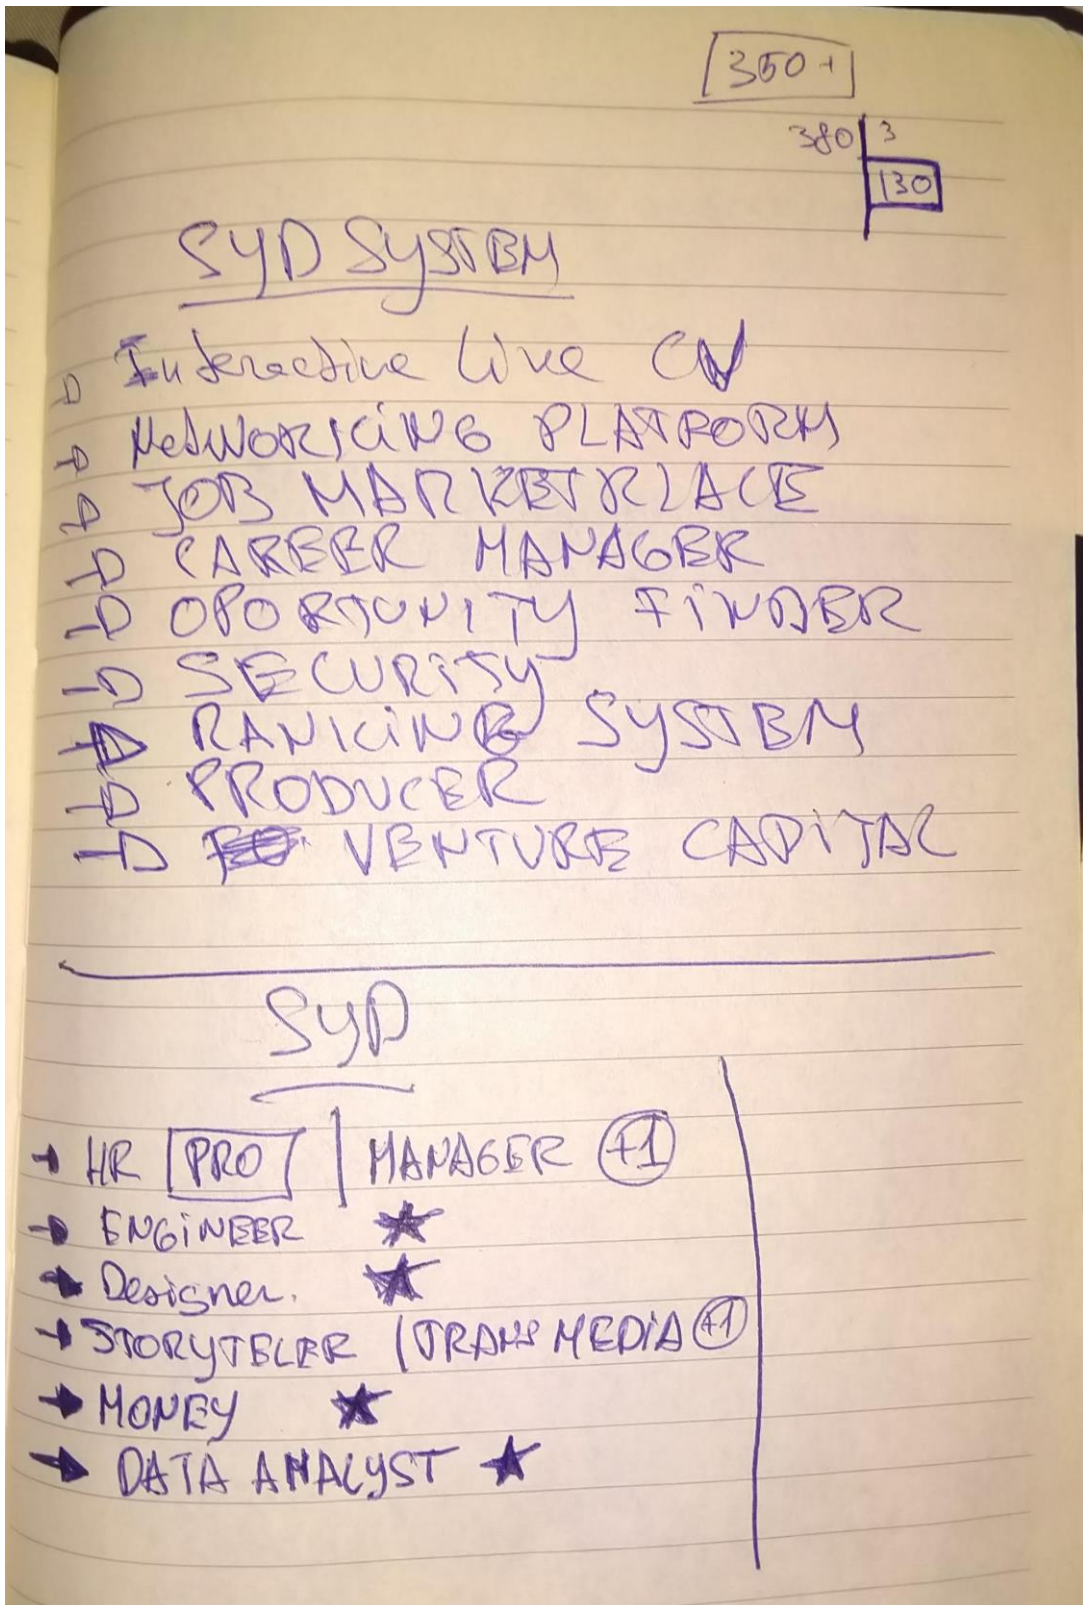 350+
380 | 3
130
SYD SYSTEM
Interactive Live CV
NETWORKING PLATFORM
JOB MARKETPLACE
CAREER MANAGER
OPORTUNITY FINDER
SECURITY
RANKING SYSTEM
PRODUCER
VENTURE CAPITAL
SYD
HR PRO | MANAGER +1
ENGINEER ★
Designer. ★
STORYTELER (TRANSMEDIA +1
MONEY ★
DATA ANALYST ★